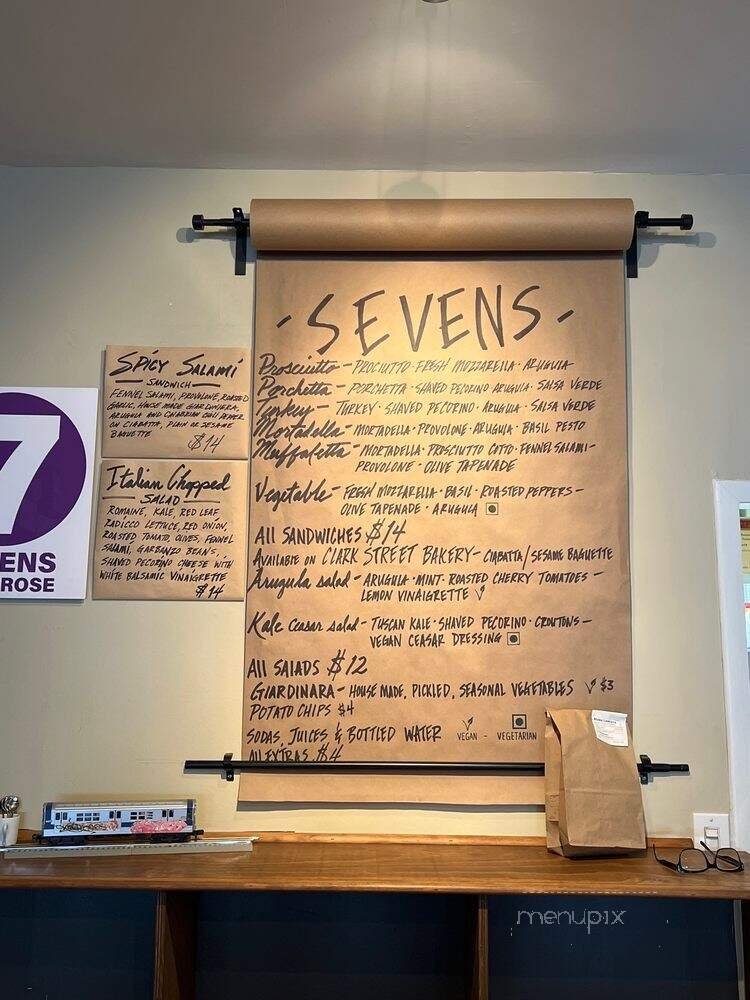 - SEVENS -
Prosciutto - PROCIUTTO · FRESH MOZZARELLA · ARUGULA
Porchetta - PORCHETTA · SHAVED PECORINO ARUGULA · SALSA VERDE
Turkey - TURKEY · SHAVED PECORINO · ARUGULA · SALSA VERDE
Mortadella - MORTADELLA · PROVOLONE · ARUGULA · BASIL PESTO
Muffaletta - MORTADELLA · PROSCIUTTO COTTO · FENNEL SALAMI -
PROVOLONE · OLIVE TAPENADE
Vegetable - FRESH MOZZARELLA · BASIL · ROASTED PEPPERS -
OLIVE TAPENADE · ARUGULA
ALL SANDWICHES $14
AVAILABLE ON CLARK STREET BAKERY - CIABATTA / SESAME BAGUETTE
Arugula salad - ARUGULA · MINT · ROASTED CHERRY TOMATOES -
LEMON VINAIGRETTE
Kale Ceasar salad - TUSCAN KALE · SHAVED PECORINO · CROUTONS -
VEGAN CEASAR DRESSING
All SALADS $12
GIARDINARA - HOUSE MADE, PICKLED, SEASONAL VEGETABLES $3
POTATO CHIPS $4
SODAS, JUICES & BOTTLED WATER
VEGAN - VEGETARIAN
All EXTRAS $4
SPICY SALAMI
SANDWICH
FENNEL SALAMI, PROVOLONE, ROASTED
GARLIC, HOUSE MADE GIARDINIERA,
ARUGULA AND CALABRIAN CHILI PEPPER
ON CIABATTA, PLAIN OR SESAME
BAGUETTE
$14
Italian Chopped
SALAD
ROMAINE, KALE, RED LEAF
RADICCO LETTUCE, RED ONION,
ROASTED TOMATO, OLIVES, FENNEL
SALAMI, GARBANZO BEANS,
SHAVED PECORINO CHEESE WITH
WHITE BALSAMIC VINAIGRETTE
$14
7
ENS
ROSE
menupix